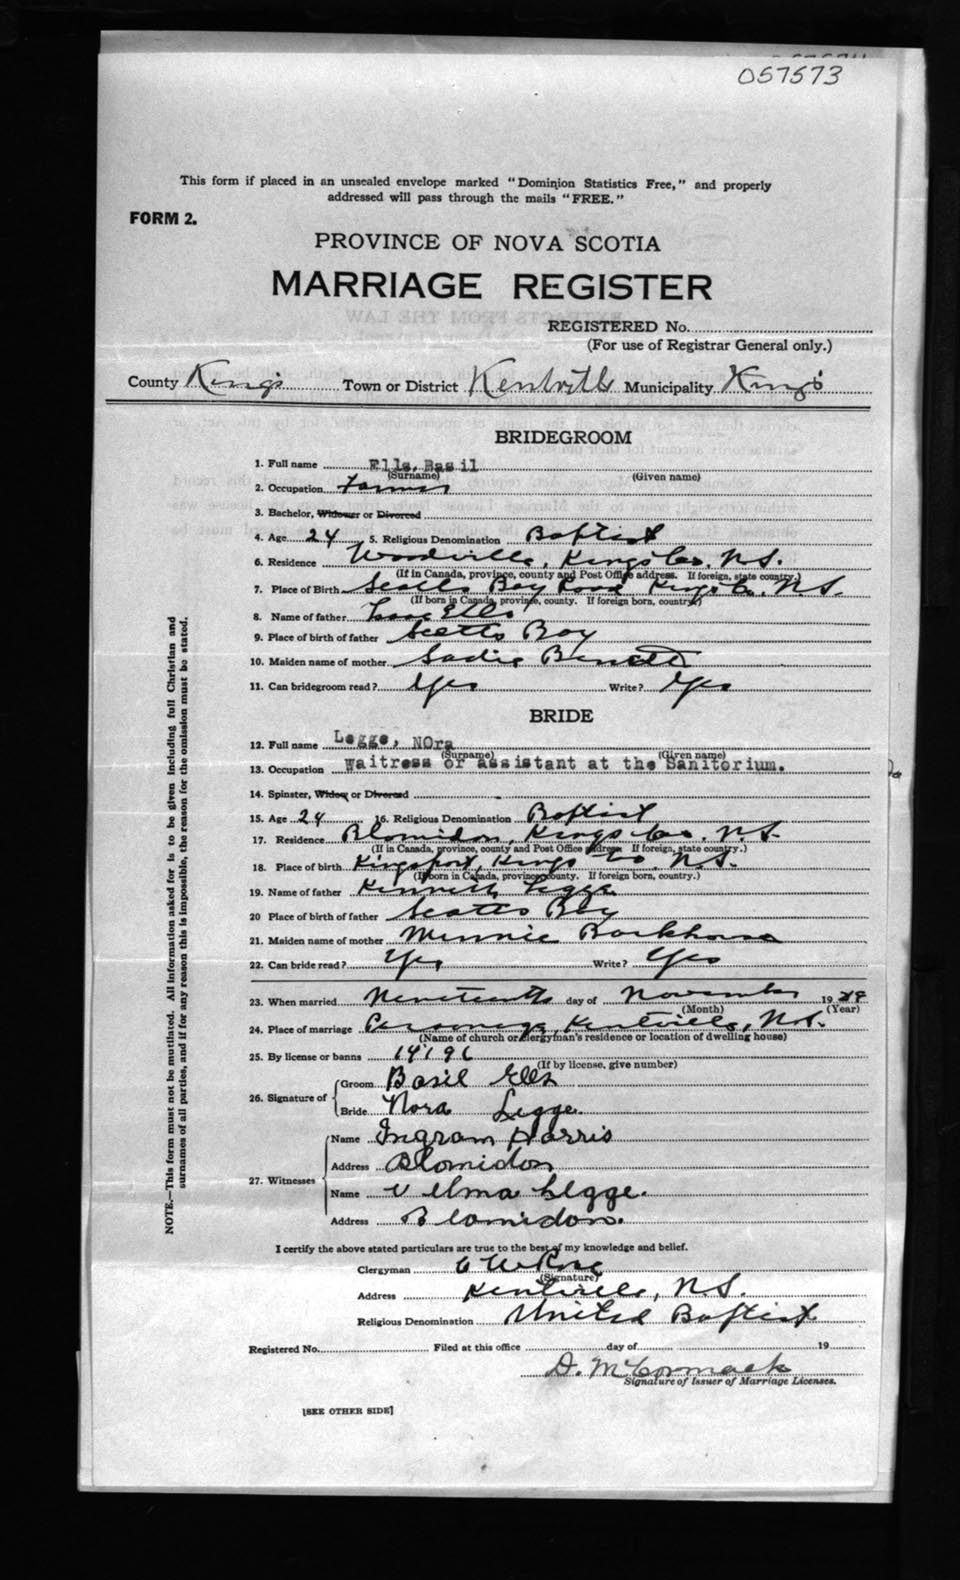 057573
This form if placed in an unsealed envelope marked "Dominion Statistics Free," and properly
addressed will pass through the mails "FREE."
FORM 2.
PROVINCE OF NOVA SCOTIA
MARRIAGE REGISTER
REGISTERED No.
(For use of Registrar General only.)
County Kings Town or District Kentville Municipality Kings
BRIDEGROOM
1. Full name Ells, Basil
(Surname) (Given name)
2. Occupation Farmer
3. Bachelor, Widower or Divorced
4. Age 24 5. Religious Denomination Baptist
6. Residence Woodville, Kings Co. N.S.
(If in Canada, province, county and Post Office address. If foreign, state country.)
7. Place of Birth Scotts Bay Road Kings Co. N.S.
(If born in Canada, province, county. If foreign born, country.)
8. Name of father Isaac Ells
9. Place of birth of father Scotts Bay
10. Maiden name of mother Sadie Bennett
11. Can bridegroom read? Yes Write? Yes
BRIDE
12. Full name Legge, NOra
(Surname) (Given name)
13. Occupation Waitress or assistant at the Sanitorium.
14. Spinster, Widow or Divorced
15. Age 24 16. Religious Denomination Baptist
17. Residence Blomidon, Kings Co. N.S.
(If in Canada, province, county and Post Office address. If foreign, state country.)
18. Place of birth Kingsport, Kings Co. N.S.
(If born in Canada, province, county. If foreign born, country.)
19. Name of father Kenneth Legge
20 Place of birth of father Scotts Bay
21. Maiden name of mother Minnie Barkhouse
22. Can bride read? Yes Write? Yes
23. When married Nineteenth day of November 19
(Month) (Year)
24. Place of marriage Parsonage, Kentville, N.S.
(Name of church or clergyman's residence or location of dwelling house)
25. By license or banns 14196
(If by license, give number)
26. Signature of Groom Basil Ells
Bride Nora Legge.
27. Witnesses Name Ingram Harris
Address Blomidon
Name Velma Legge.
Address Blomidon.
I certify the above stated particulars are true to the best of my knowledge and belief.
Clergyman Rose
(Signature)
Address Kentville, N.S.
Religious Denomination United Baptist
Registered No. Filed at this office day of 19
D. McCormack
Signature of Issuer of Marriage Licenses.
[SEE OTHER SIDE]
NOTE.—This form must not be mutilated. All information asked for is to be given including full Christian and
surnames of all parties, and if for any reason this is impossible, the reason for the omission must be stated.